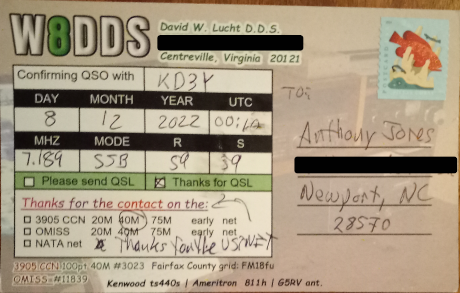 W8DDS
David W. Lucht D.D.S.
Centreville, Virginia 20121
Confirming QSO with KD3Y
DAY MONTH YEAR UTC
8 12 2022
MHZ MODE R S
7.189 SSB 59 59
Please send QSL Thanks for QSL
Thanks for the contact on the:
3905 CCN 20M 40M 75M early net
OMISS 20M 40M 75M early net
NATA net Thanks
3905 CCN 100pt 40M #3023 Fairfax County grid: FM18fu
OMISS=#11839
Kenwood ts440s | Ameritron 811h | G5RV ant.
TO:
Anthony Jones
Newport, NC
28570